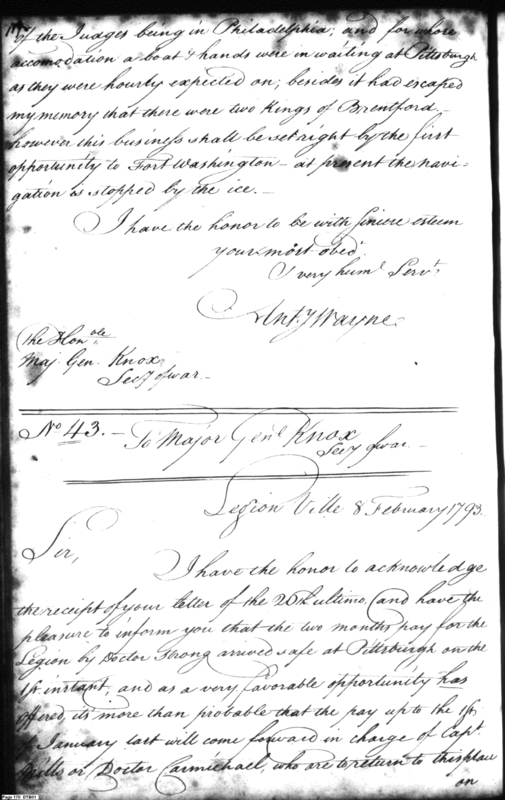 of the Judges being in Philadelphia; and for whose
accomodation a boat & hands were in waiting at Pittsburgh
as they were hourly expected on; besides it had escaped
my memory that there were two Kings of Brentford.—
however this business shall be set right by the first
opportunity to Fort Washington — at present the navi-
gation is stopped by the ice.—
I have the honor to be with sincere esteem
your most obed.t
& very hum.l Serv.t
Ant.y Wayne
The Hon.ble
Maj. Gen. Knox
Sec.y of war—
No 43.— To Major Gen.l Knox
Sec.y of war—
Legion Ville 8 February 1793.
Sir,
I have the honor to acknowledge
the receipt of your letter of the 26th ultimo, and have the
pleasure to inform you that the two months pay for the
Legion by Doctor Strong arrived safe at Pittsburgh on the
1st. instant, and as a very favorable opportunity has
offered, it's more than probable that the pay up to the 1st.
of January last will come forward in charge of Cap.t
Mills or Doctor Carmichael, who are to return to this place
on
Page 170